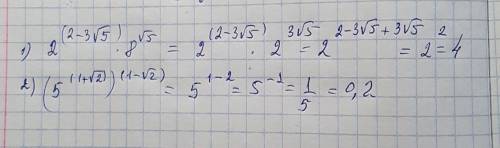 1) 2^(2-3√5) · 8^√5 = 2^(2-3√5) · 2^3√5 = 2^2-3√5+3√5 = 2^2 = 4
2) (5^(1+√2))^(1-√2) = 5^1-2 = 5^-1 = 1/5 = 0,2